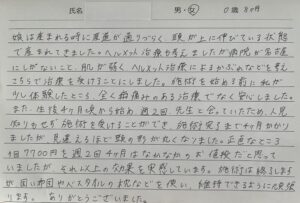 氏名 男・女 0歳8か月
娘は産まれる時に産道が通りづらく 頭が上に伸びている状態
で産まれてきました。ヘルメット治療も考えましたが病院が名古屋
にしかないこと、肌が弱くヘルメット治療によるかぶれなどを考え
こちらで治療を受けることにしました。施術を始める前に私が
少し体験したところ、全く痛みのある治療でなく安心しました。
また 生後4ヶ月頃から始め 週2回 先生と会っていたため、人見
知りもせず 施術を受けることができ 施術完了まで4ヶ月かかり
ましたが 見違えるほど頭の形が丸くなりました。正直なところ
1回7700円を週2回4ヶ月はなかなかのお値段だと思って
いましたが それ以上の効果を実感しています。施術は終了します
が 固い布団やバスタオルの枕などを使い、維持できるように頑張
ります。 ありがとうございました。